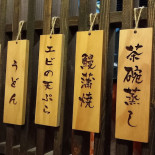 茶碗蒸し
鰻蒲焼
エビの天ぷら
うどん